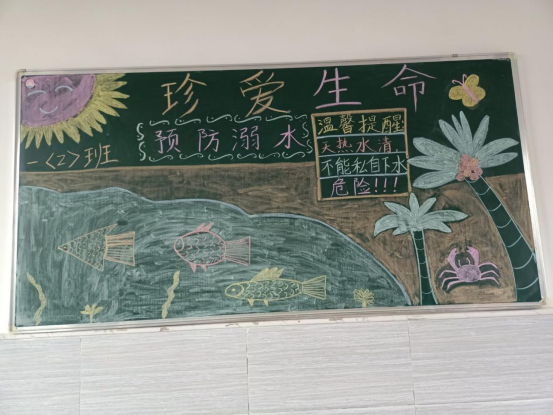 珍爱生命
预防溺水
一〈2〉班
温馨提醒
天热水清,
不能私自下水
危险!!!